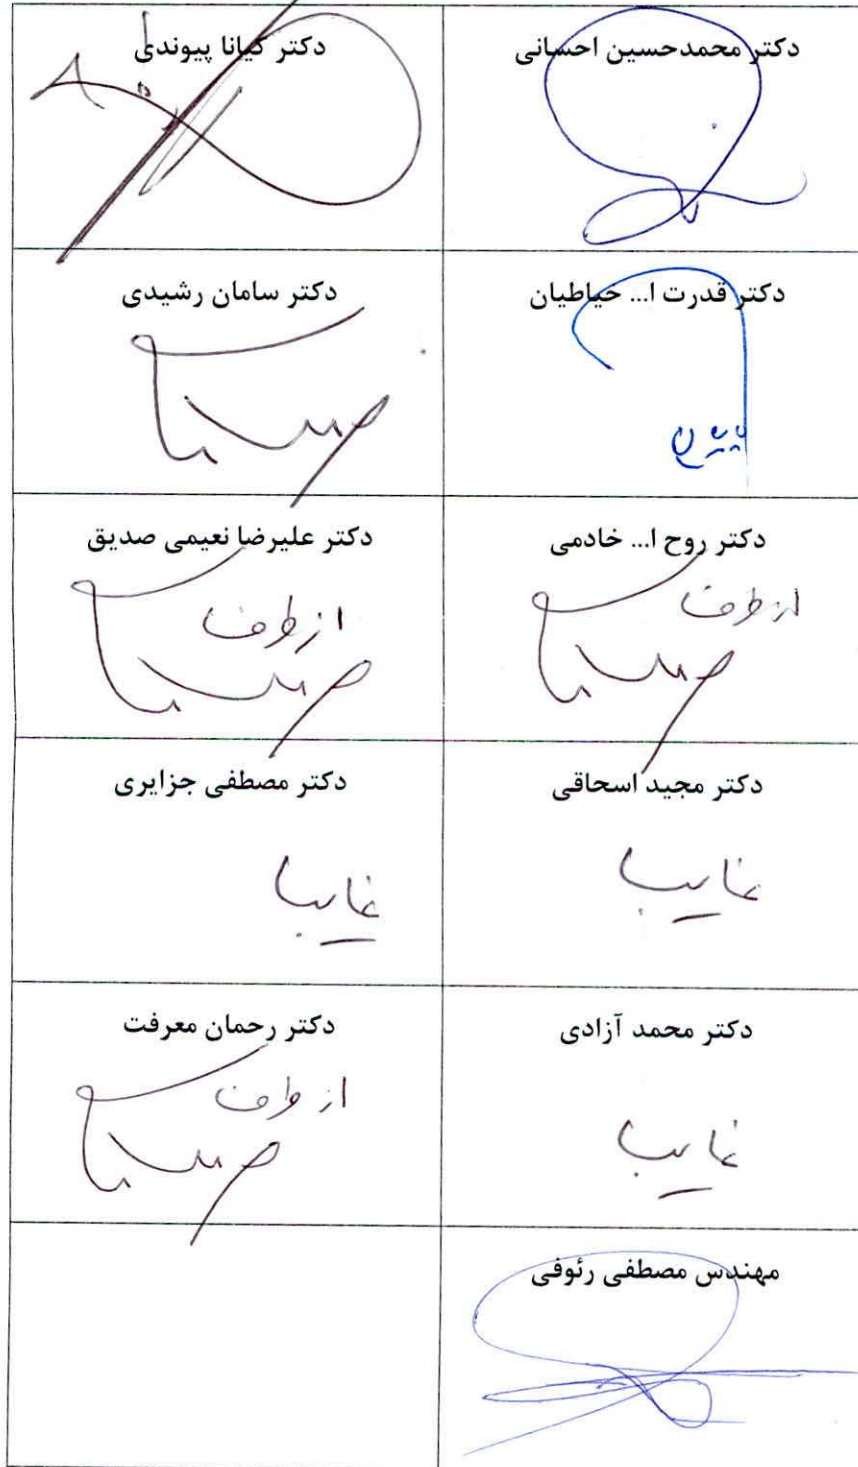 دکتر محمدحسین احسانی
دکتر کیانا پیوندی
دکتر قدرت ا... خیاطیان
دکتر سامان رشیدی
دکتر روح ا... خادمی
از طرف
دکتر علیرضا نعیمی صدیق
از طرف
دکتر مجید اسحاقی
غایب
دکتر مصطفی جزایری
غایب
دکتر محمد آزادی
غایب
دکتر رحمان معرفت
از طرف
مهندس مصطفی رئوفی